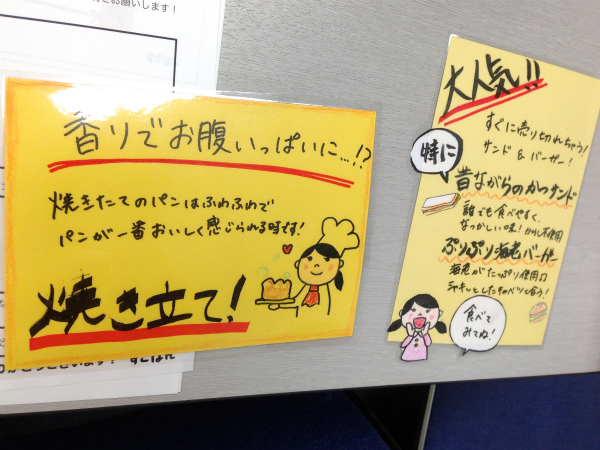 お願いします!
香りでお腹いっぱいに…!?
焼きたてのパンはふわふわで
パンが一番おいしく感じられる時です!
焼き立て!
大人気!!
すぐに売り切れちゃう!
サンド&バーガー!
特に
昔ながらのかつサンド
誰でも食べやすく、
なつかしい味!からし不使用
ぷりぷり海老バーガー
海老がたっぷり使用
シャキッとしたキャベツも合う!
食べて
みてね!